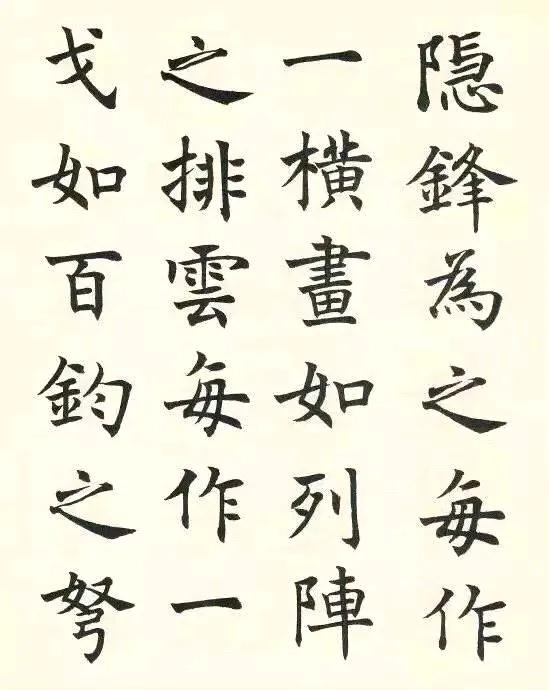 隠鋒為之每作
一橫畫如列陣
之排雲每作一
戈如百鈞之弩